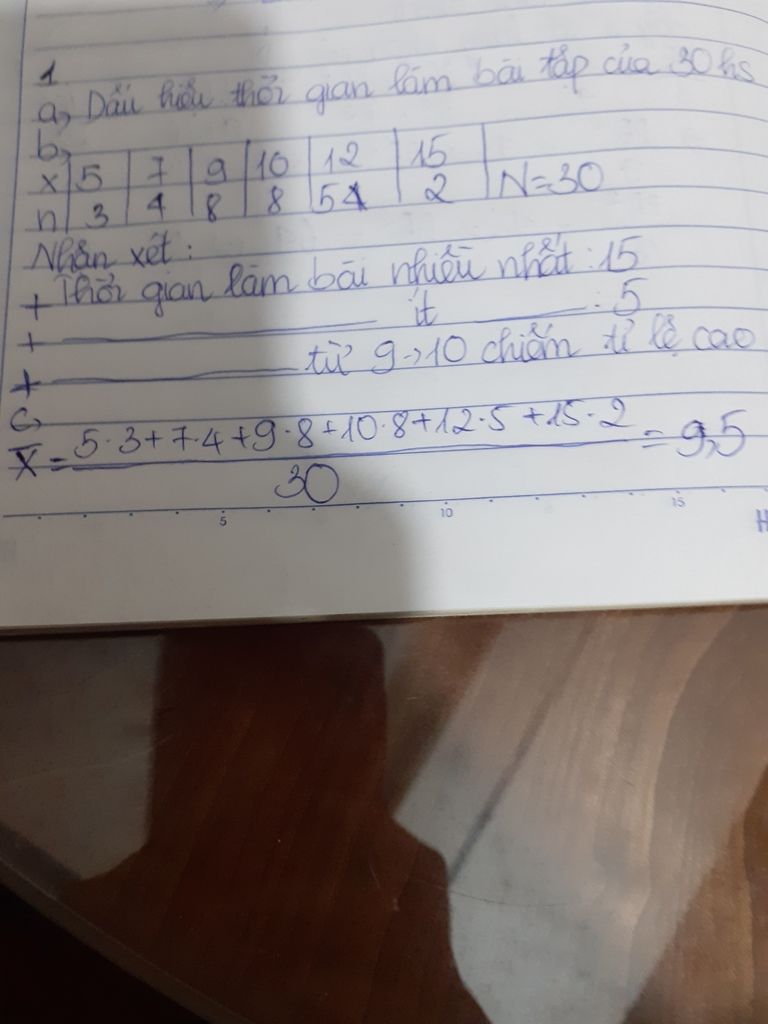 1
a, Dấu hiệu thời gian làm bài tập của 30 hs
b,
x 5 7 9 10 12 15
n 3 4 8 8 5 2 N=30
Nhận xét:
+ Thời gian làm bài nhiều nhất: 15
+ ít : 5
+ từ 9→10 chiếm tỉ lệ cao
c,
X̄ = 5·3+7·4+9·8+10·8+12·5+15·2 = 9,5
30
5 10 15
H